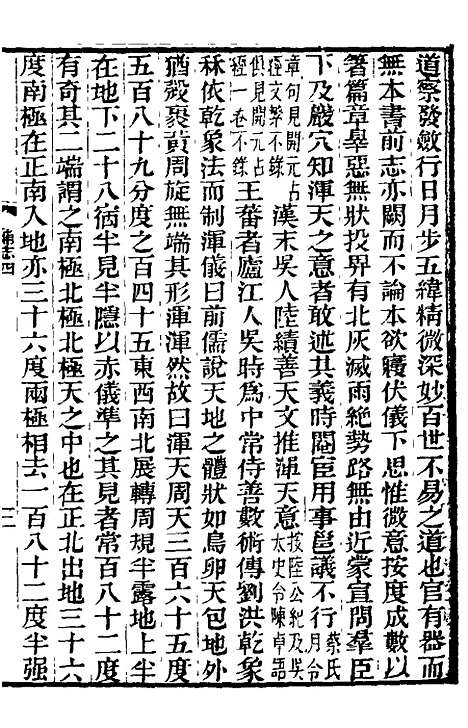 道察發斂行日月步五緯精微深妙百世不易之道也官有器而
無本書前志亦闕而不論本欲寢伏儀下思惟微意按度成數以
箸篇章辠惡無狀投畀有北灰滅雨絶勢路無由近蒙宣問羣臣
下及巖穴知渾天之意者敢述其義時閹宦用事邕議不行月令蔡氏
章句見開元占經文繁不錄漢末吳人陸績善天文推渾天意按陸公紀及吳太史令陳卓語
俱見開元占經一卷不錄王蕃者廬江人吳時爲中常侍善數術傳劉洪乾象
秝依乾象法而制渾儀曰前儒說天地之體狀如鳥卵天包地外
猶殼裹黃周旋無端其形渾渾然故曰渾天周天三百六十五度
五百八十九分度之百四十五東西南北展轉周規半露地上半
在地下二十八宿半見半隱以赤儀準之其見者常百八十二度
有奇其二端謂之南極北極北極天之中也在正北出地三十六
度南極在正南入地亦三十六度兩極相去一百八十二度半强